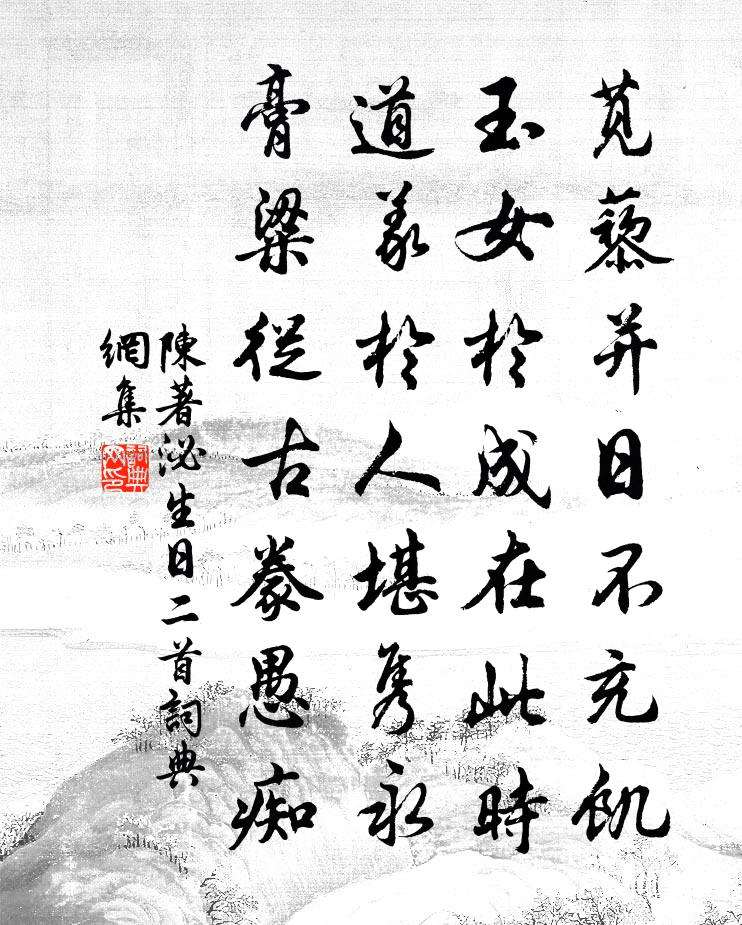 莧藜并日不充飢
玉女於成在此時
道義於人堪雋永
膏粱從古豢愚痴
陳著泌生日二首詞典
網集
詞典
网印